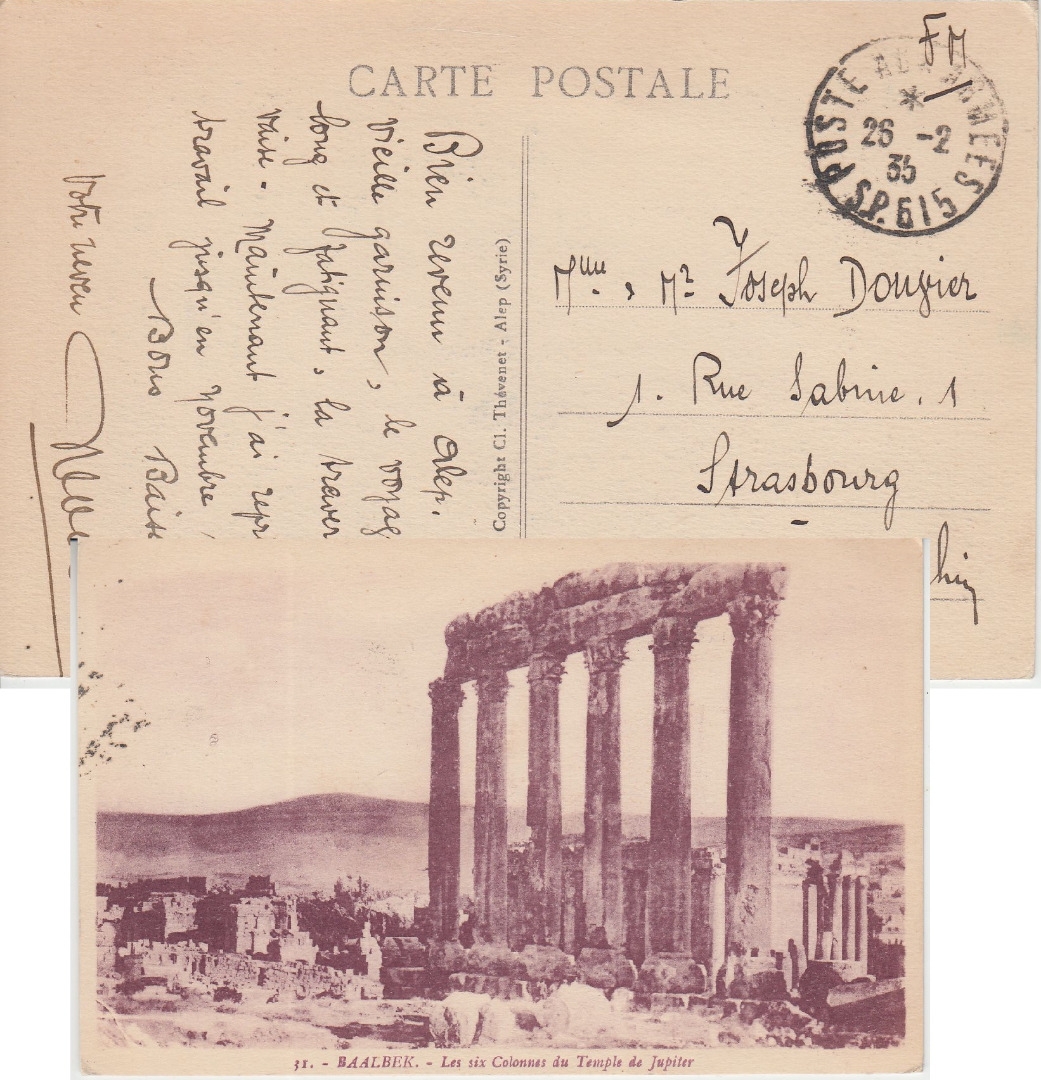 CARTE POSTALE
FM
POSTE AUX ARMEES
*
26 -2
35
S.P. 615
Bien revenu à Alep.
Vieille garnison, le voyag
long et fatignant, la traver
vaise - Maintenant j'ai repr
travail jusqu'en Novembre !
Bons Baise
Votre neveu
Copyright Cl. Thévenet - Alep (Syrie)
Mme, Mr Joseph Dougier
1. Rue Sabine. 1
Strasbourg
hin
31. - BAALBEK. - Les six Colonnes du Temple de Jupiter